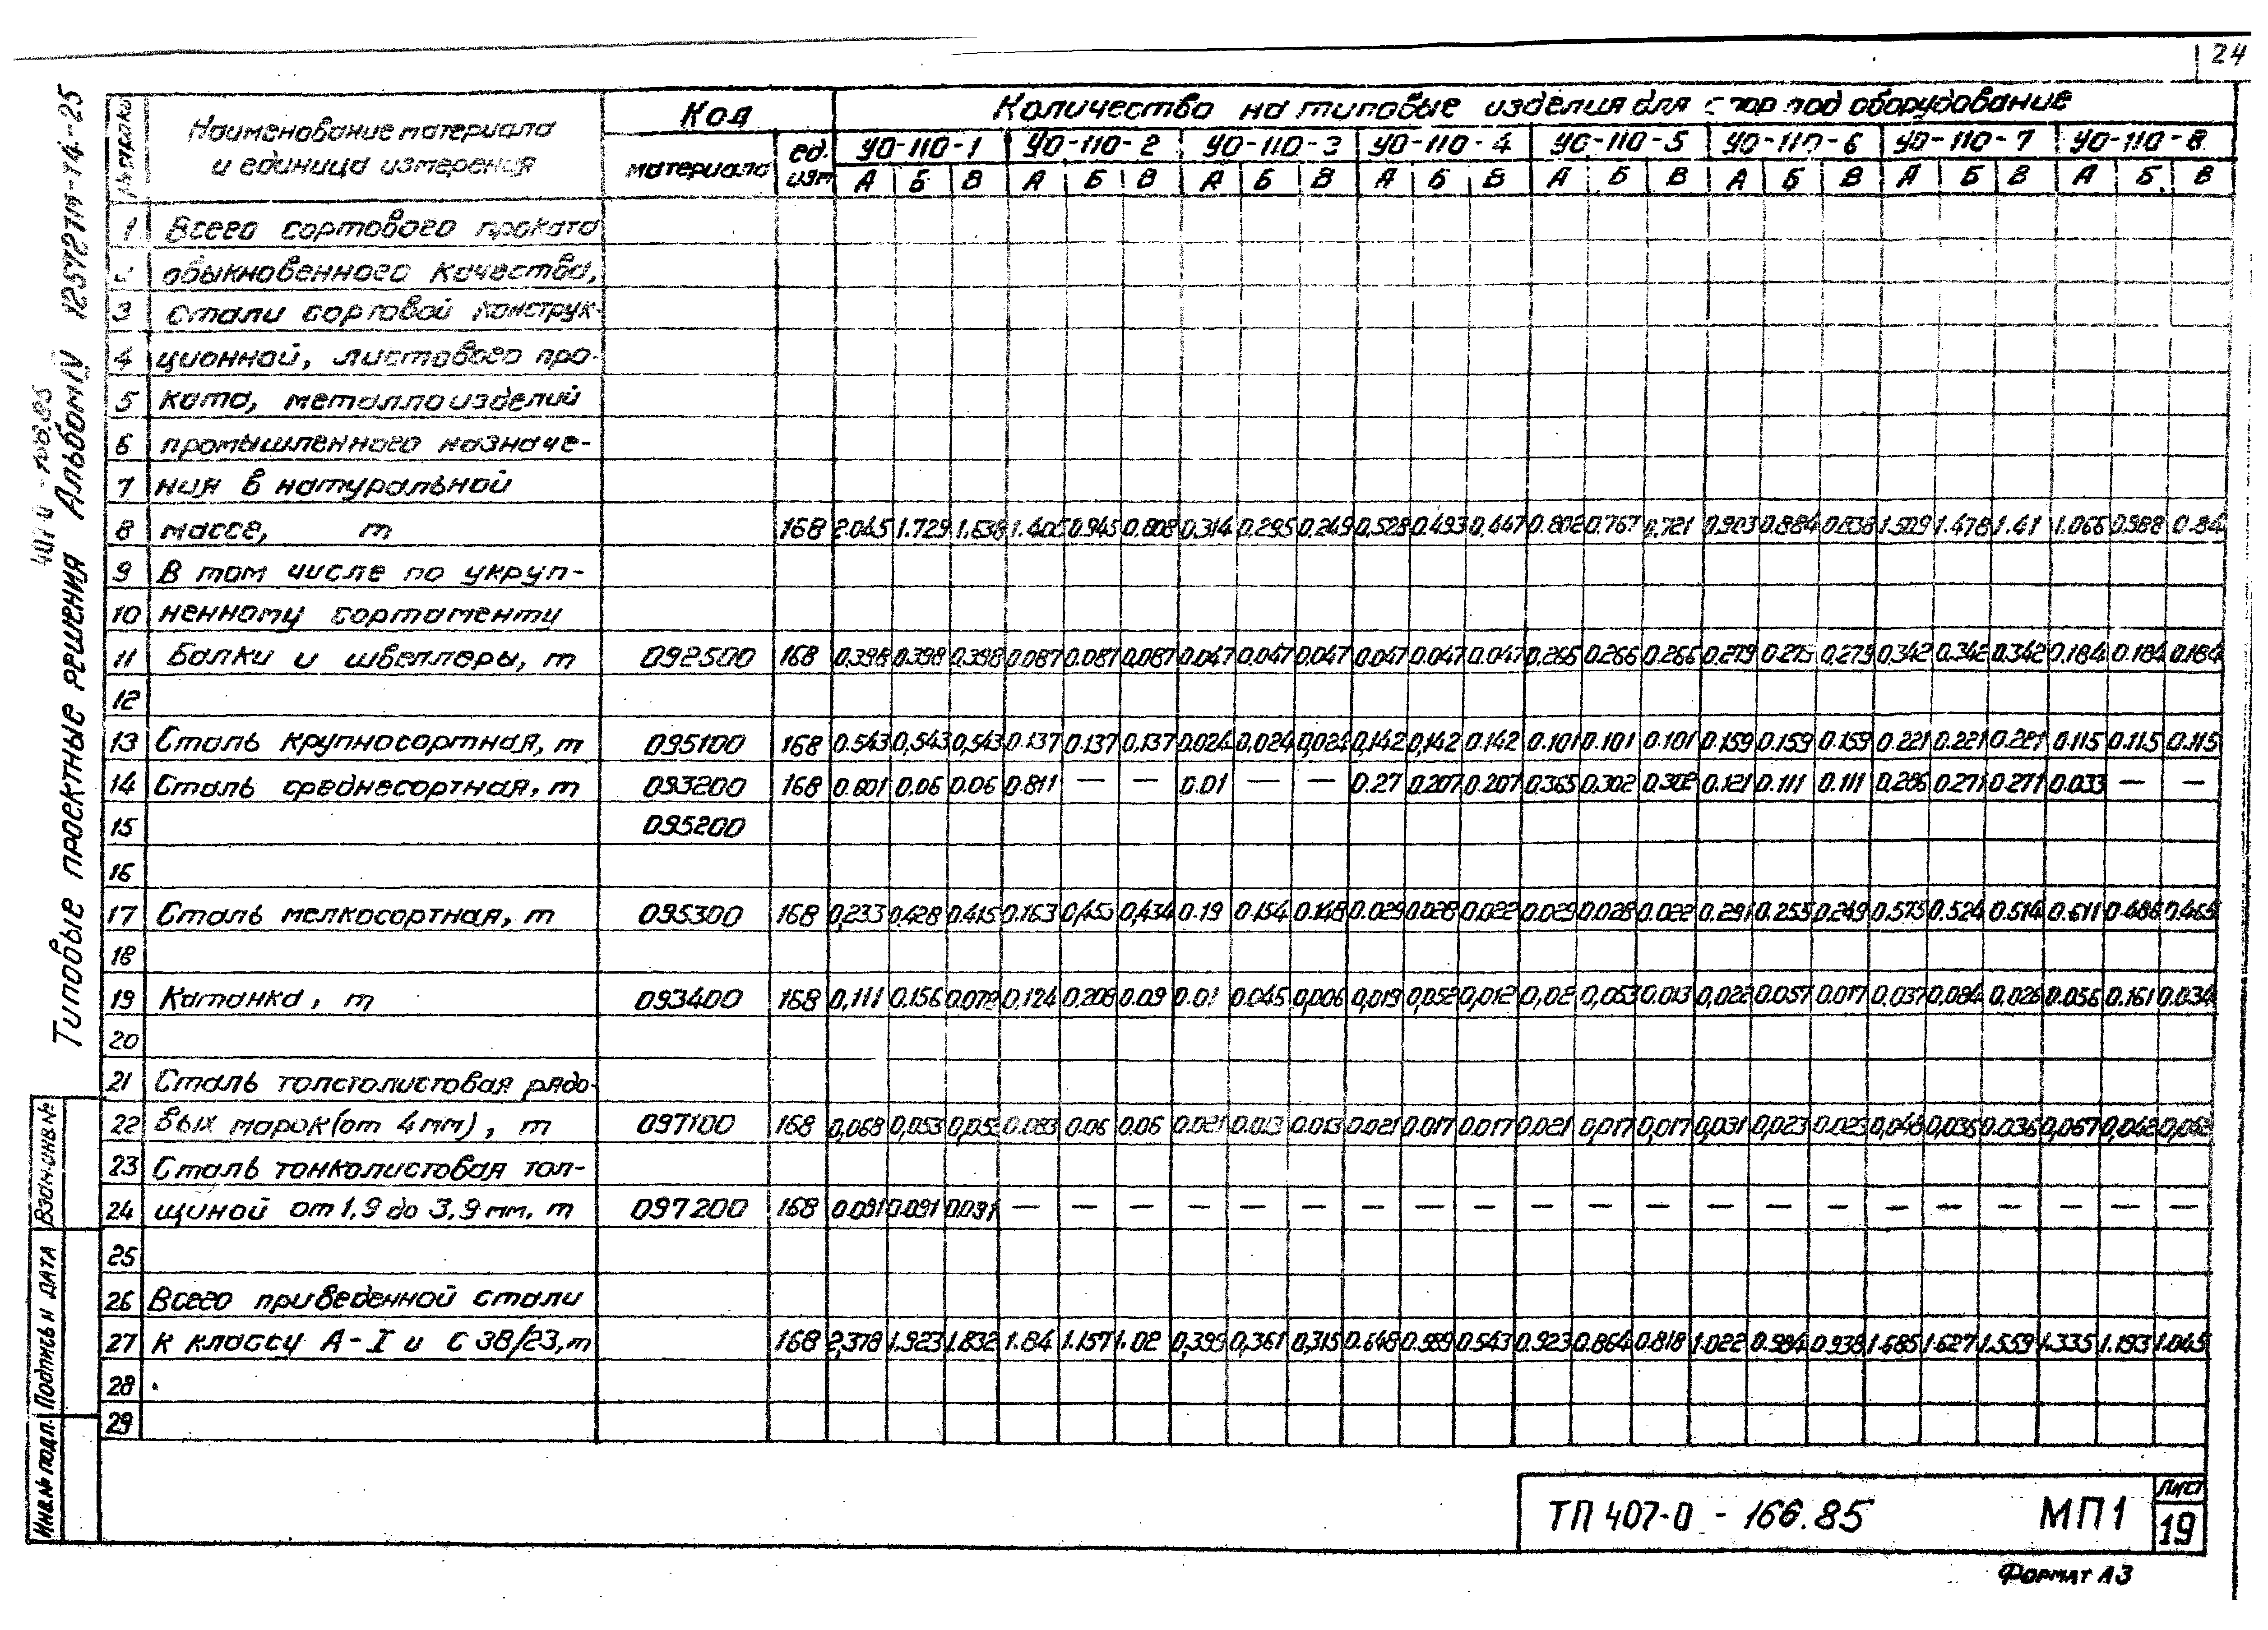 24
Количество на типовые изделия для опор под оборудование
Код
№ строки
Наименование материала и единица измерения
материала
ед. изм
УО-110-1 УО-110-2 УО-110-3 УО-110-4 УО-110-5 УО-110-6 УО-110-7 УО-110-8
А Б В А Б В А Б В А Б В А Б В А Б В А Б В А Б В
1 Всего сортового проката
2 обыкновенного качества,
3 стали сортовой конструк-
4 ционной, листового про-
5 ката, металлоизделий
6 промышленного назначе-
7 ния в натуральной
8 массе, т 168 2.045 1.729 1.638 1.405 0.945 0.808 0.314 0.295 0.249 0.528 0.493 0.447 0.802 0.767 0.721 0.903 0.884 0.838 1.509 1.478 1.41 1.066 0.988 0.84
9 В том числе по укруп-
10 ненному сортаменту
11 Балки и швеллеры, т 092500 168 0.398 0.398 0.398 0.087 0.087 0.087 0.047 0.047 0.047 0.047 0.047 0.047 0.266 0.266 0.266 0.279 0.279 0.279 0.342 0.342 0.342 0.184 0.184 0.184
12
13 Сталь крупносортная, т 095100 168 0.543 0,543 0,543 0.137 0.137 0,137 0.024 0,024 0,024 0,142 0,142 0.142 0.101 0.101 0.101 0.159 0.159 0.159 0.221 0.221 0.221 0.115 0.115 0.115
14 Сталь среднесортная, т 093200 168 0.601 0.06 0.06 0.811 — — 0.01 — — 0.27 0.207 0.207 0.365 0.302 0.302 0.121 0.111 0.111 0.286 0.271 0.271 0.033 — —
15 095200
16
17 Сталь мелкосортная, т 095300 168 0,233 0.428 0.415 0.163 0,453 0,434 0.19 0.154 0.148 0.029 0.028 0.022 0.029 0.028 0.022 0.291 0.255 0.249 0.575 0.524 0.514 0.611 0.486 0.465
18
19 Катанка, т 093400 168 0,111 0.156 0.078 0.124 0.208 0.09 0.01 0.045 0,006 0,019 0,052 0,012 0,02 0,053 0.013 0,022 0.057 0.017 0,037 0,084 0.026 0.056 0.161 0.034
20
21 Сталь толстолистовая рядо-
22 вых марок (от 4 мм), т 097100 168 0,068 0,053 0,053 0.083 0.06 0.06 0.021 0.013 0.013 0.021 0.017 0.017 0.021 0,017 0,017 0,031 0,023 0.023 0,048 0,036 0.036 0,067 0,042 0,042
23 Сталь тонколистовая тол-
24 щиной от 1,9 до 3,9 мм, т 097200 168 0.091 0.091 0.091 — — — — — — — — — — — — — — — — — — — — —
25
26 Всего приведенной стали
27 к классу А-I и С 38/23, т 168 2,378 1.923 1.832 1.84 1.157 1.02 0,399 0,361 0,315 0.648 0.589 0.543 0.923 0.864 0.818 1.022 0.984 0.938 1.685 1.627 1.559 1.335 1.193 1.045
28
29
Типовые проектные решения Альбом IV 12572ТМ-Т4-25
Взам.инв.№
Подпись и дата
Инв.№ подл.
ТП 407-0-166.85 МП1
Лист
19
Формат А3